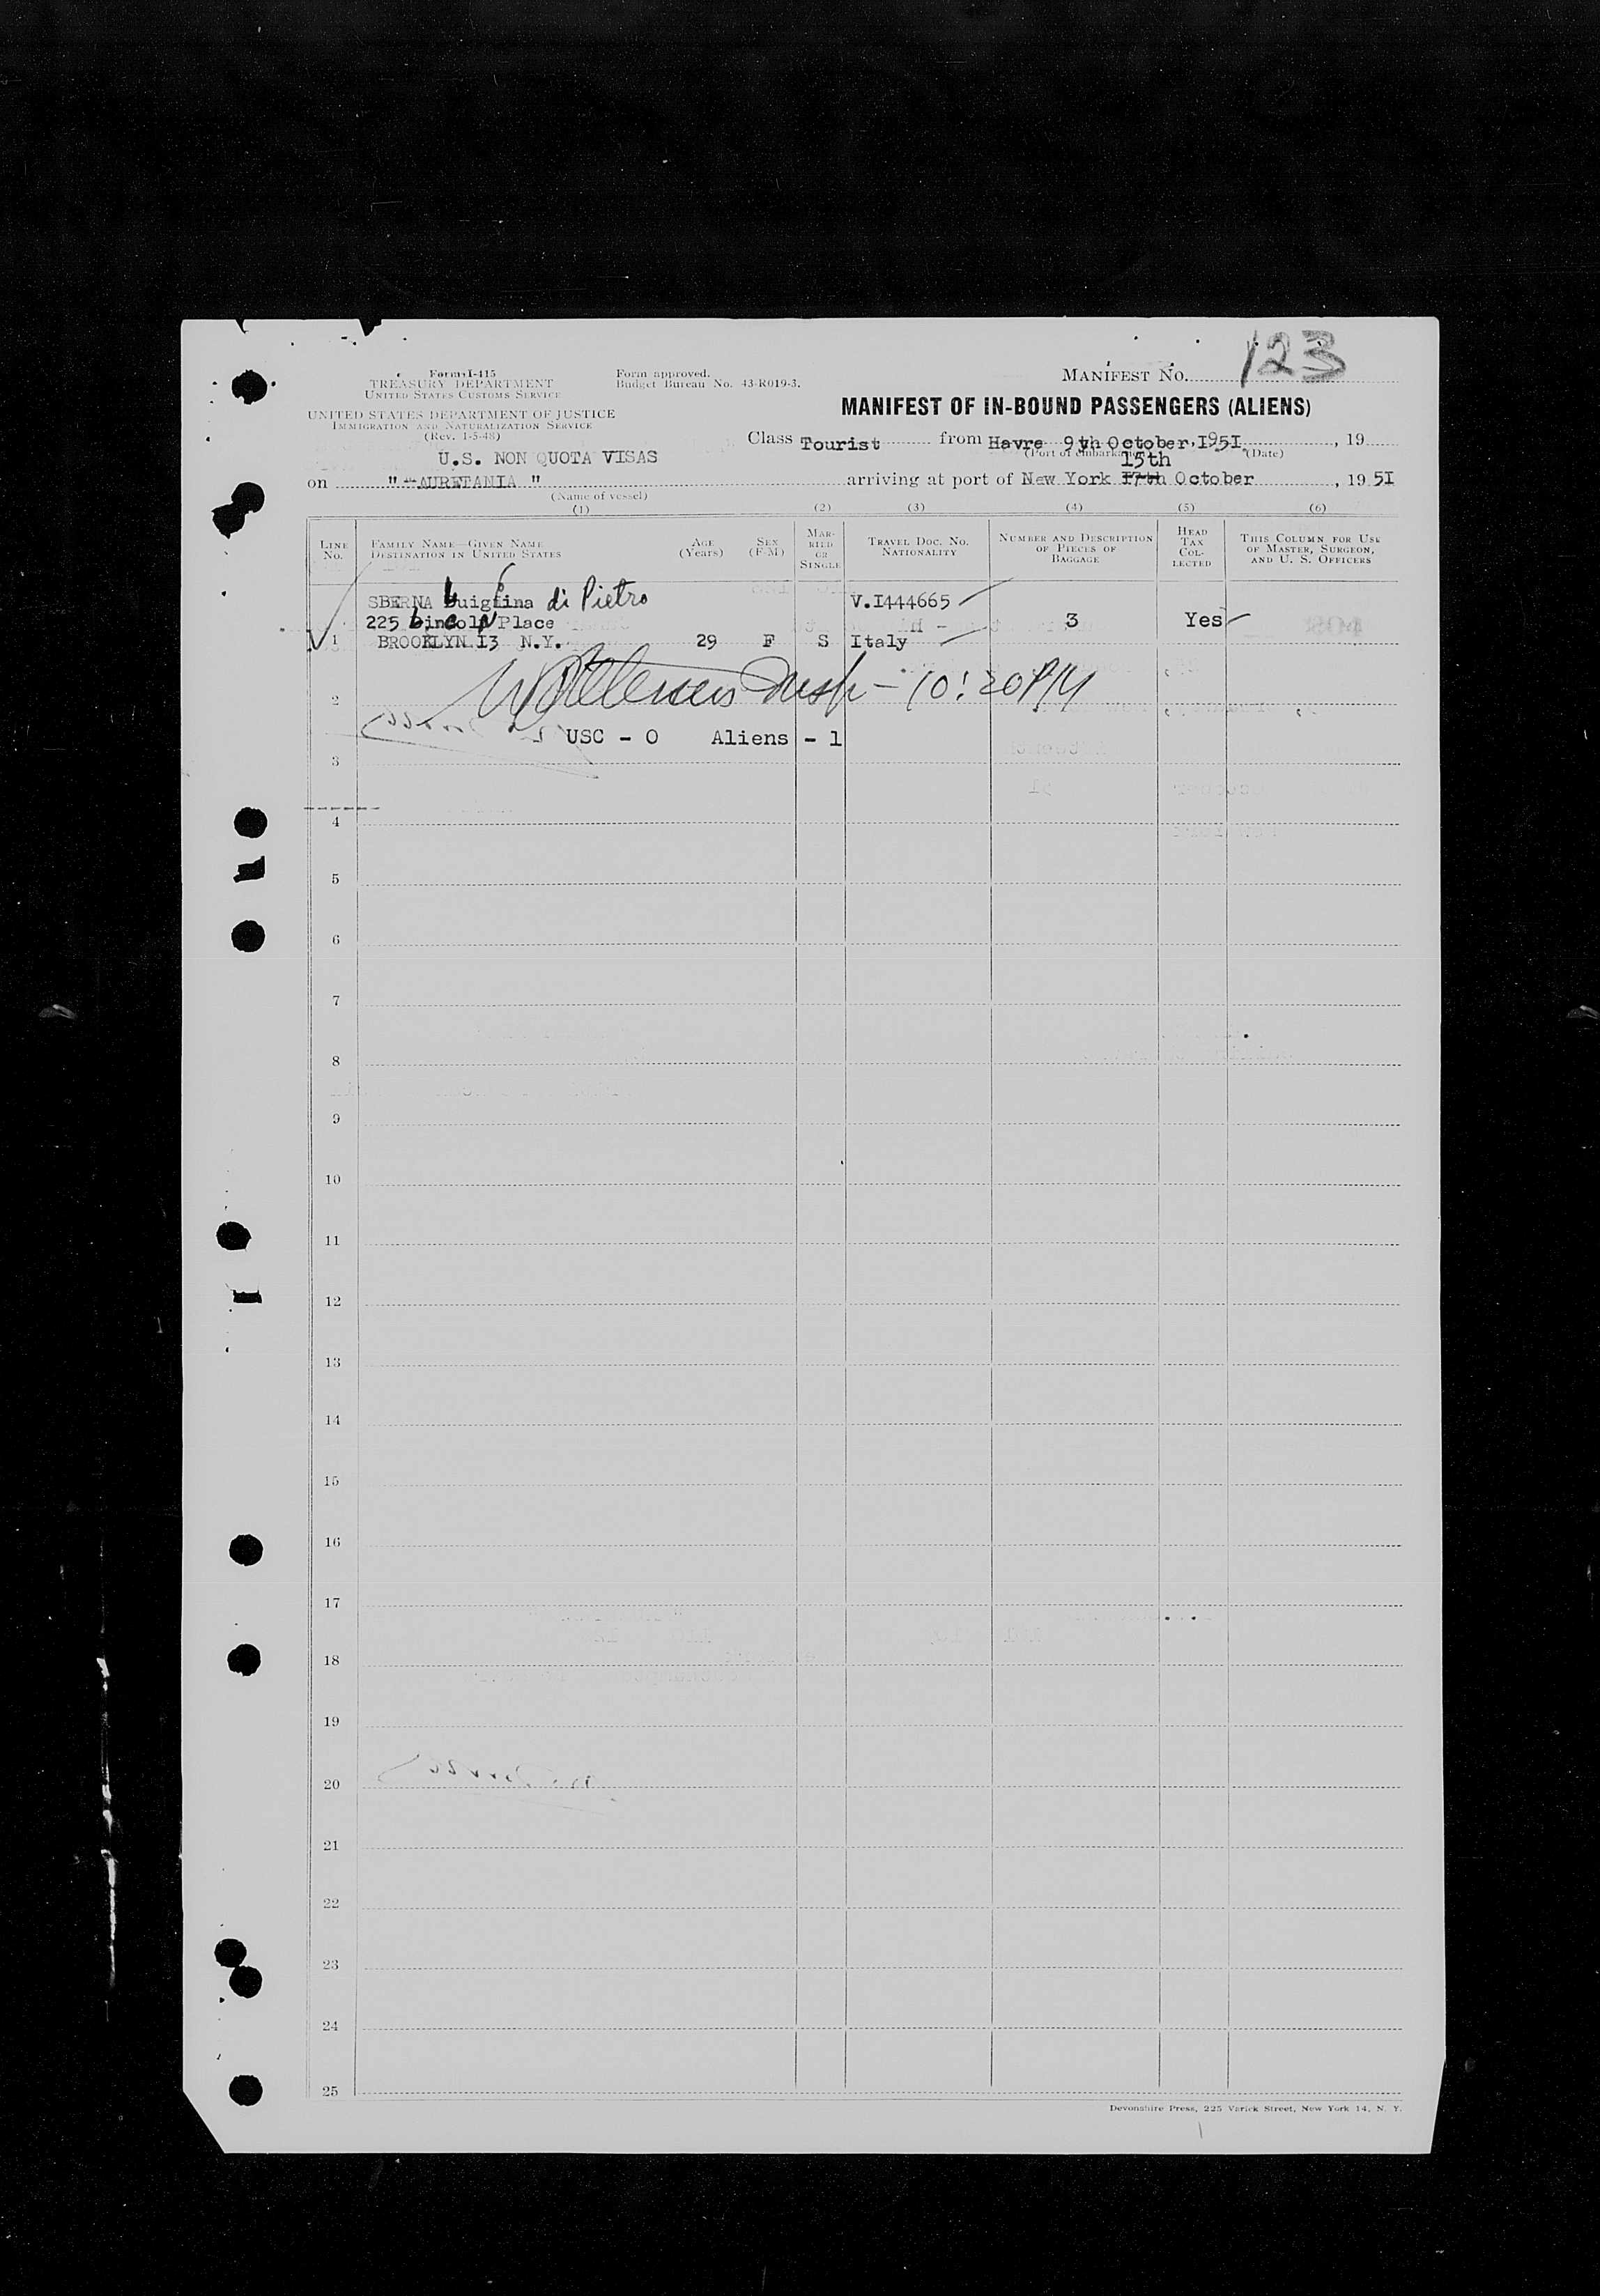 123
Form I-415
TREASURY DEPARTMENT
UNITED STATES CUSTOMS SERVICE
Form approved.
Budget Bureau No. 43-R019-3.
MANIFEST NO.
UNITED STATES DEPARTMENT OF JUSTICE
IMMIGRATION AND NATURALIZATION SERVICE
(Rev. 1-5-48)
MANIFEST OF IN-BOUND PASSENGERS (ALIENS)
Class Tourist from Havre 9th October, I95I, 19
(Port of embarkation) (Date)
U.S. NON QUOTA VISAS
15th
on "MAURETANIA" arriving at port of New York 17th October, 19 5I
(Name of vessel)
(1) (2) (3) (4) (5) (6)
LINE No. FAMILY NAME—GIVEN NAME DESTINATION IN UNITED STATES AGE (Years) SEX (F-M) MARRIED OR SINGLE TRAVEL DOC. NO. NATIONALITY NUMBER AND DESCRIPTION OF PIECES OF BAGGAGE HEAD TAX COLLECTED THIS COLUMN FOR USE OF MASTER, SURGEON, AND U. S. OFFICERS
SBERNA Luigina di Pietro V.I444665
225 Lincoln Place 3 Yes
1 BROOKLYN I3 N.Y. 29 F S Italy
2 Insp - 10:20 PM
USC - 0 Aliens - 1
3
4
5
6
7
8
9
10
11
12
13
14
15
16
17
18
19
20
21
22
23
24
25
Devonshire Press, 225 Varick Street, New York 14, N. Y.